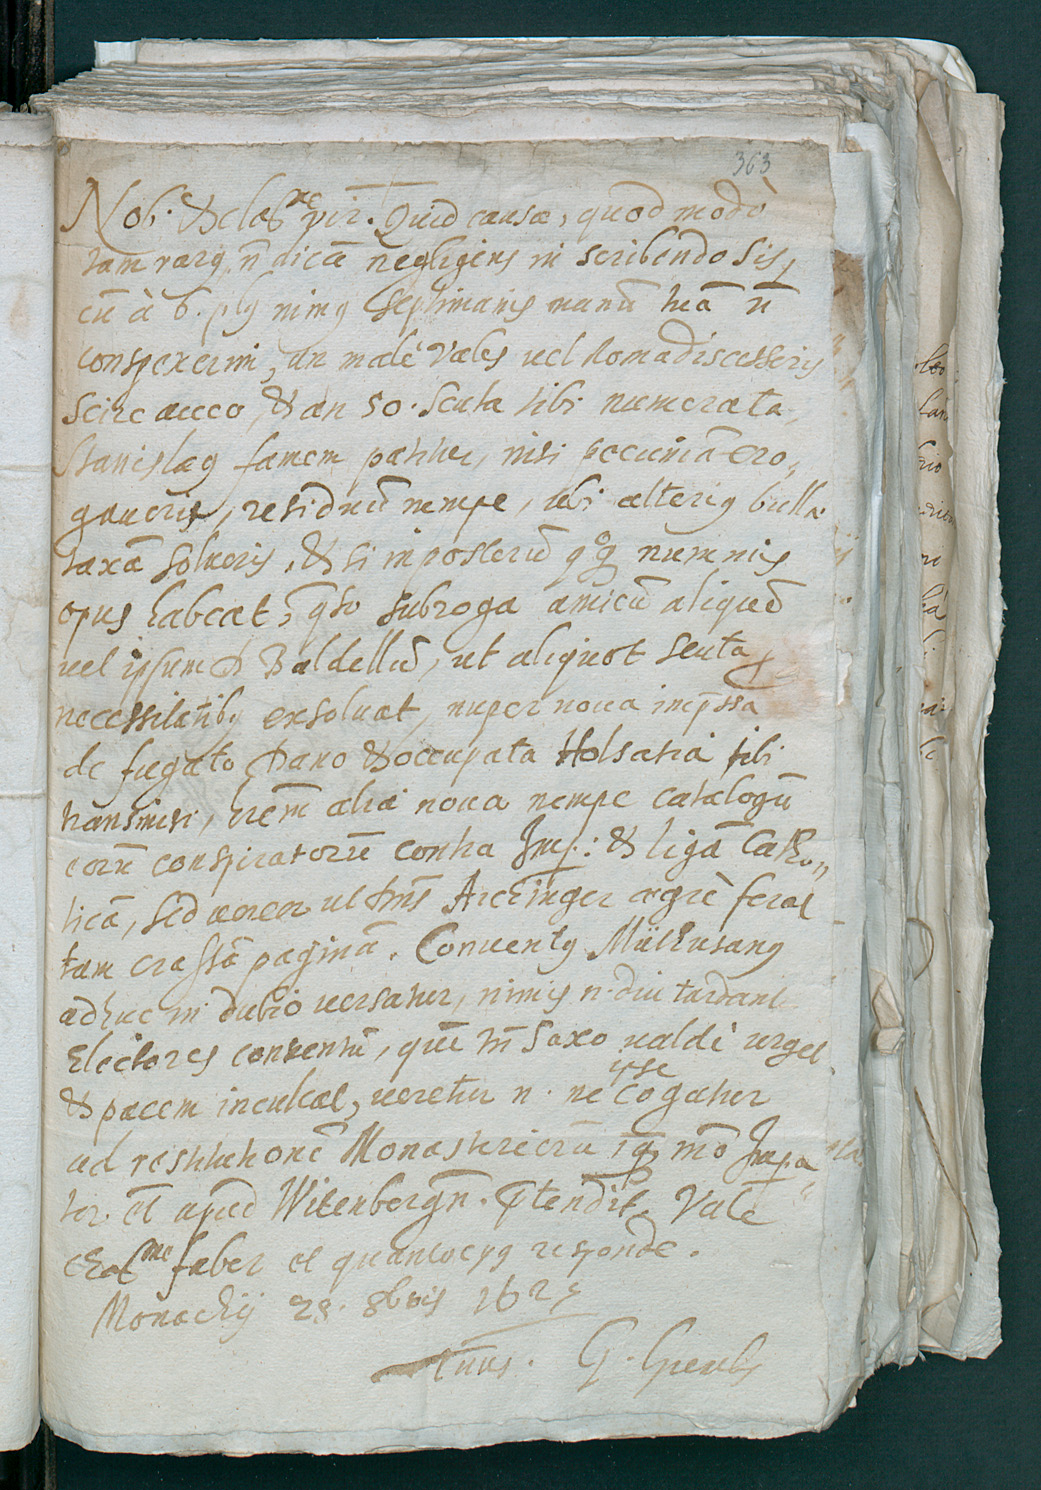 363
Nob. & clar^me vir. Quid causæ, quod modò
tam rarꝯ, n̄ dicā negligens in scribendo sis,
cū à 6. plꝯ nimꝯ septimanis manū tuā n̄
conspexerim, an malè vales vel Roma discesseris
scire aueo, & an 50. scuta tibi numerata,
Stanislaꝯ famem patitur, nisi pecuniā ero„
gaueris, residuū nempe, ubi alteriꝯ bullæ
taxā solueris, & si in posterū qꝯ nummis
opus habeat, q̄so subroga amicū aliquē
uel ipsum D Baldellū, ut aliquot scuta
necessitatibꝯ exsoluat, nuper noua imp̄ssa
de fugato Dano & occupata Holsatia tibi
transmisi, item alia noua nempe catalogū
eorū conspiratorū contra Imp: & ligā Catho„
licā, sed uereor ut Archinger ægrè ferat
tam crassā paginā. Conuentꝯ Mülhusanꝯ
adhuc in dubio uersatur, nimis n. diu tardant
Electores conuentū, quē tn̄ Saxo ualdè urget
& pacem inculcat, ueretur n. ne ipse cogatur
ad restitutionē Monasteriorū mō Impa„
tor. et apud Witenbergn̄. p̄tendit. Vale
Faber et quantocyꝯ responde.
Monachij 28. 8bris 162
tuus. G.